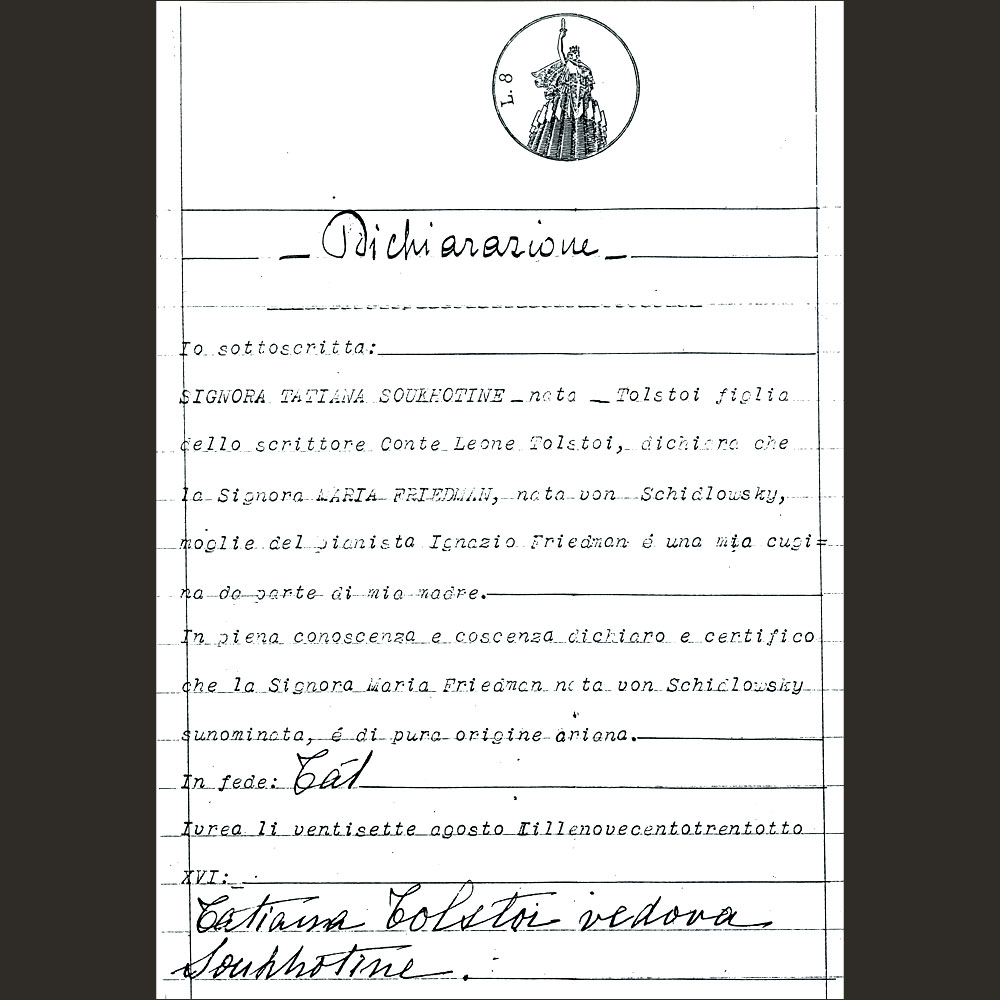 L. 8
Dichiarazione
Io sottoscritta:
SIGNORA TATIANA SOUKHOTINE nata Tolstoi figlia
dello scrittore Conte Leone Tolstoi, dichiara che
la Signora MARIA FRIEDMAN, nata von Schidlowsky,
moglie del pianista Ignazio Friedman é una mia cugi=
na da parte di mia madre.
In piena conoscenza e coscenza dichiaro e certifico
che la Signora Maria Friedman nata von Schidlowsky
sunominata, é di pura origine ariana.
In fede: Tat
Ivrea li ventisette agosto Millenovecentotrentotto
XVI:
Tatiana Tolstoi vedova
Soukhotine.